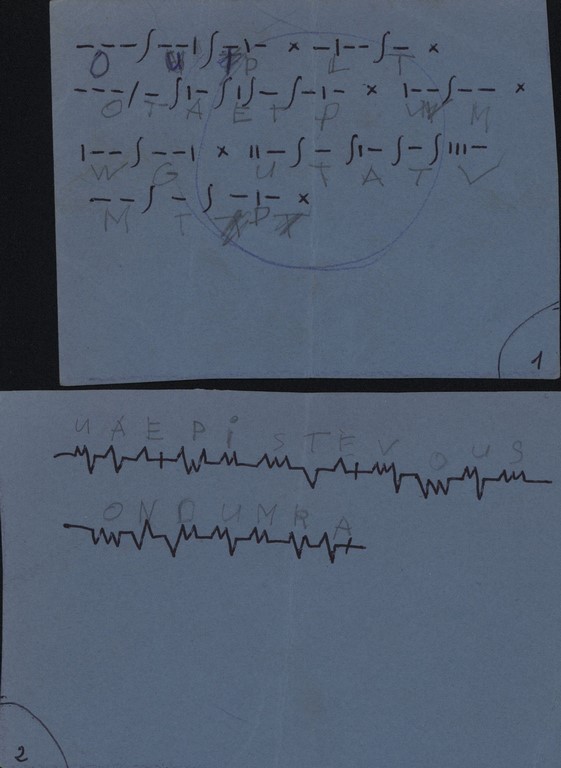 – – – ∫ – – | ∫ – | – × – | – – ∫ – ×
O U P L T
– – – / – ∫ | – ∫ | ∫ – ∫ – | – × | – – ∫ – – ×
O T A E T P W M
| – – ∫ – – | × || – ∫ – ∫ | – ∫ – ∫ ||| –
W G U T A T V
– – ∫ – ∫ – | – ×
M T P
1
U A E P i S T E V O U S
O N D U M R A
2